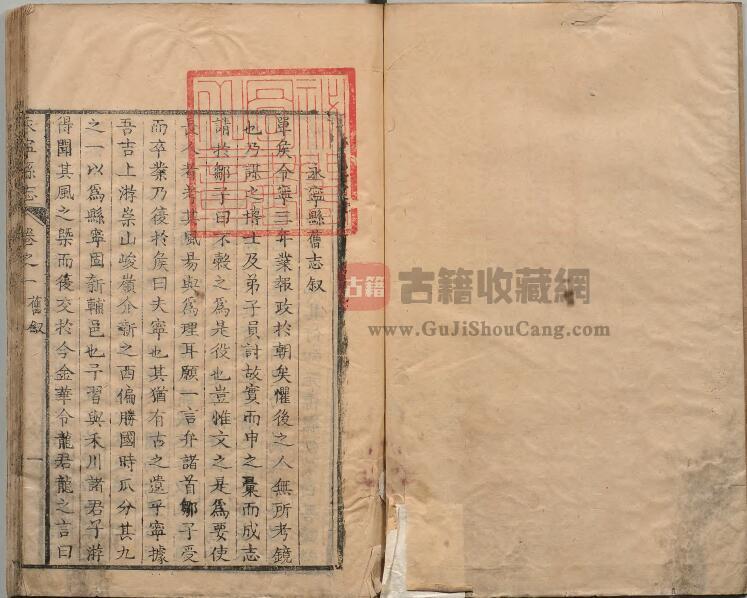 永寧縣舊志叙
單矦令寧三年業報政於朝矣懼後之人無所考鏡
也乃謀之博士及弟子員討故實而申之稾而成志
請於鄒子曰不榖之為是役也豈惟文之是為要使
長人者考其風易與為理耳願一言弁諸首鄒子受
而卒業乃復於矦曰夫寧也其猶有古之遺乎寧據
吾吉上游崇山峻嶺介新之酉偏勝國時瓜分其九
之一以為縣寧固新輔邑也予習與禾川諸君子游
得聞其風之槩而後交於今金華令龍君龍之言曰
永寧縣志 卷之一 舊叙 一
古籍
古籍收藏網
www.GuJiShouCang.com